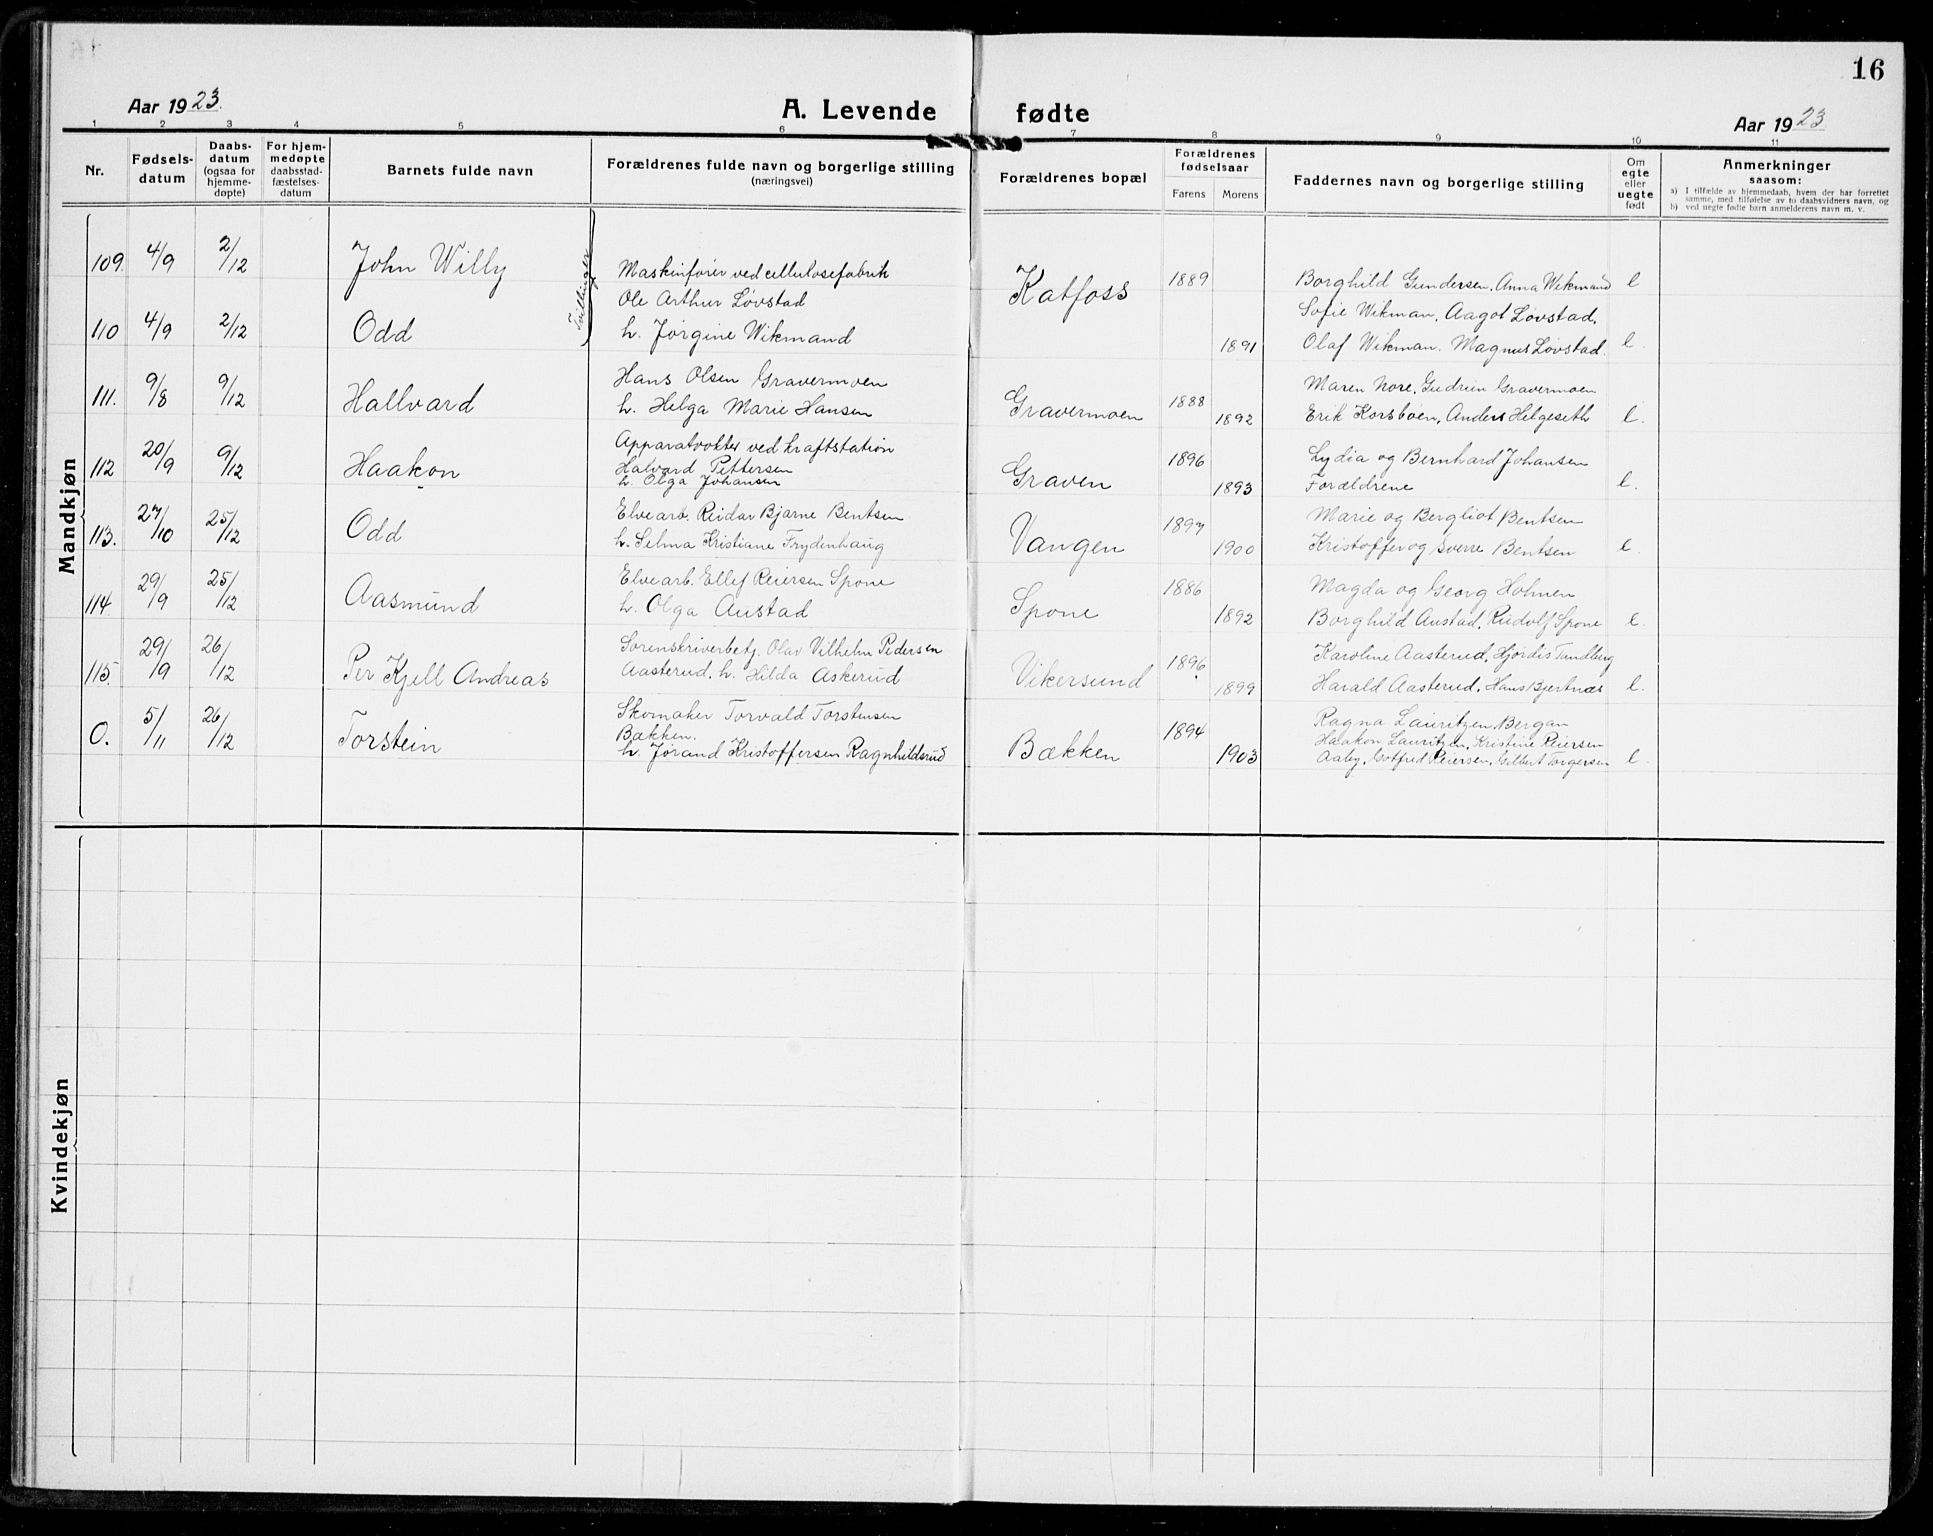 16
Aar 1923.
A. Levende fødte
Aar 1923
1 2 3 4 5 6 7 8 9 10 11
Nr.
Fødsels-
datum
Daabs-
datum
(ogsaa for
hjemme-
døpte)
For hjem-
medøpte
daabsstad-
fæstelses-
datum
Barnets fulde navn
Forældrenes fulde navn og borgerlige stilling
(næringsvei)
Forældrenes bopæl
Forældrenes
fødselsaar
Farens
Morens
Faddernes navn og borgerlige stilling
Om
egte
eller
uegte
født
Anmerkninger
saasom:
a) I tilfælde av hjemmedaab, hvem der har forrettet
samme, med tilføielse av to daabsvidners navn, og
b) ved uegte fødte barn anmelderens navn m. v.
Mandkjøn
109. 4/9 2/12 John Willy
Tvillinger
Maskinfører ved cellulosefabrik
Ole Arthur Løvstad
Katfoss 1889
Borghild Gundersen. Anna Wikmand e
Sofie Wikman. Aagot Løvstad.
110 4/9 2/12 Odd
h. Jørgine Wikmand
1891
Olaf Wikman. Magnus Løvstad. e.
111. 9/8 9/12 Hallvard
Hans Olsen Gravermoen
h. Helga Marie Hansen
Gravermoen 1888 1892
Maren Nore. Gudrun Gravermoen
Erik Korsboen, Anders Helgeseth e.
112 20/9 9/12 Haakon
Apparatvokter ved kraftstation
Halvard Pettersen
h. Olga Johansen
Graven 1896 1893
Lydia og Bernhard Johansen
Forældrene e.
113. 27/10 25/12 Odd
Elvearb. Reidar Bjarne Bentsen
h. Selma Kristiane Frydenhaug
Vangen 1897 1900
Marie og Bergliot Bentsen
Kristoffer og Sverre Bentsen e.
114. 29/9 25/12 Aasmund
Elvearb. Ellef Reiersen Spone
h. Olga Austad
Spone 1886 1892
Magda og Georg Holmen
Borghild Austad. Rudolf Spone e.
115. 29/9 26/12 Per Kjell Andreas
Sorenskriverbetj. Olav Vilhelm Pedersen
Aasterud. h. Hilda Askerud
Vikersund 1896. 1899
Karoline Aasterud. Hjørdis Tandberg
Harald Aasterud. Hans Bjertnæs e.
O. 5/11 26/12 Torstein
Skomaker Torvald Torstensen
Bækken.
h. Jørand Kristoffersen Ragnhildsrud
Bækken 1894 1903
Ragna Lauritzen Bergan
Haakon Lauritzen, Kristine Reiersen
Aaby. Gotfred Reiersen. Gilbert Torgersen e.
Kvindekjøn